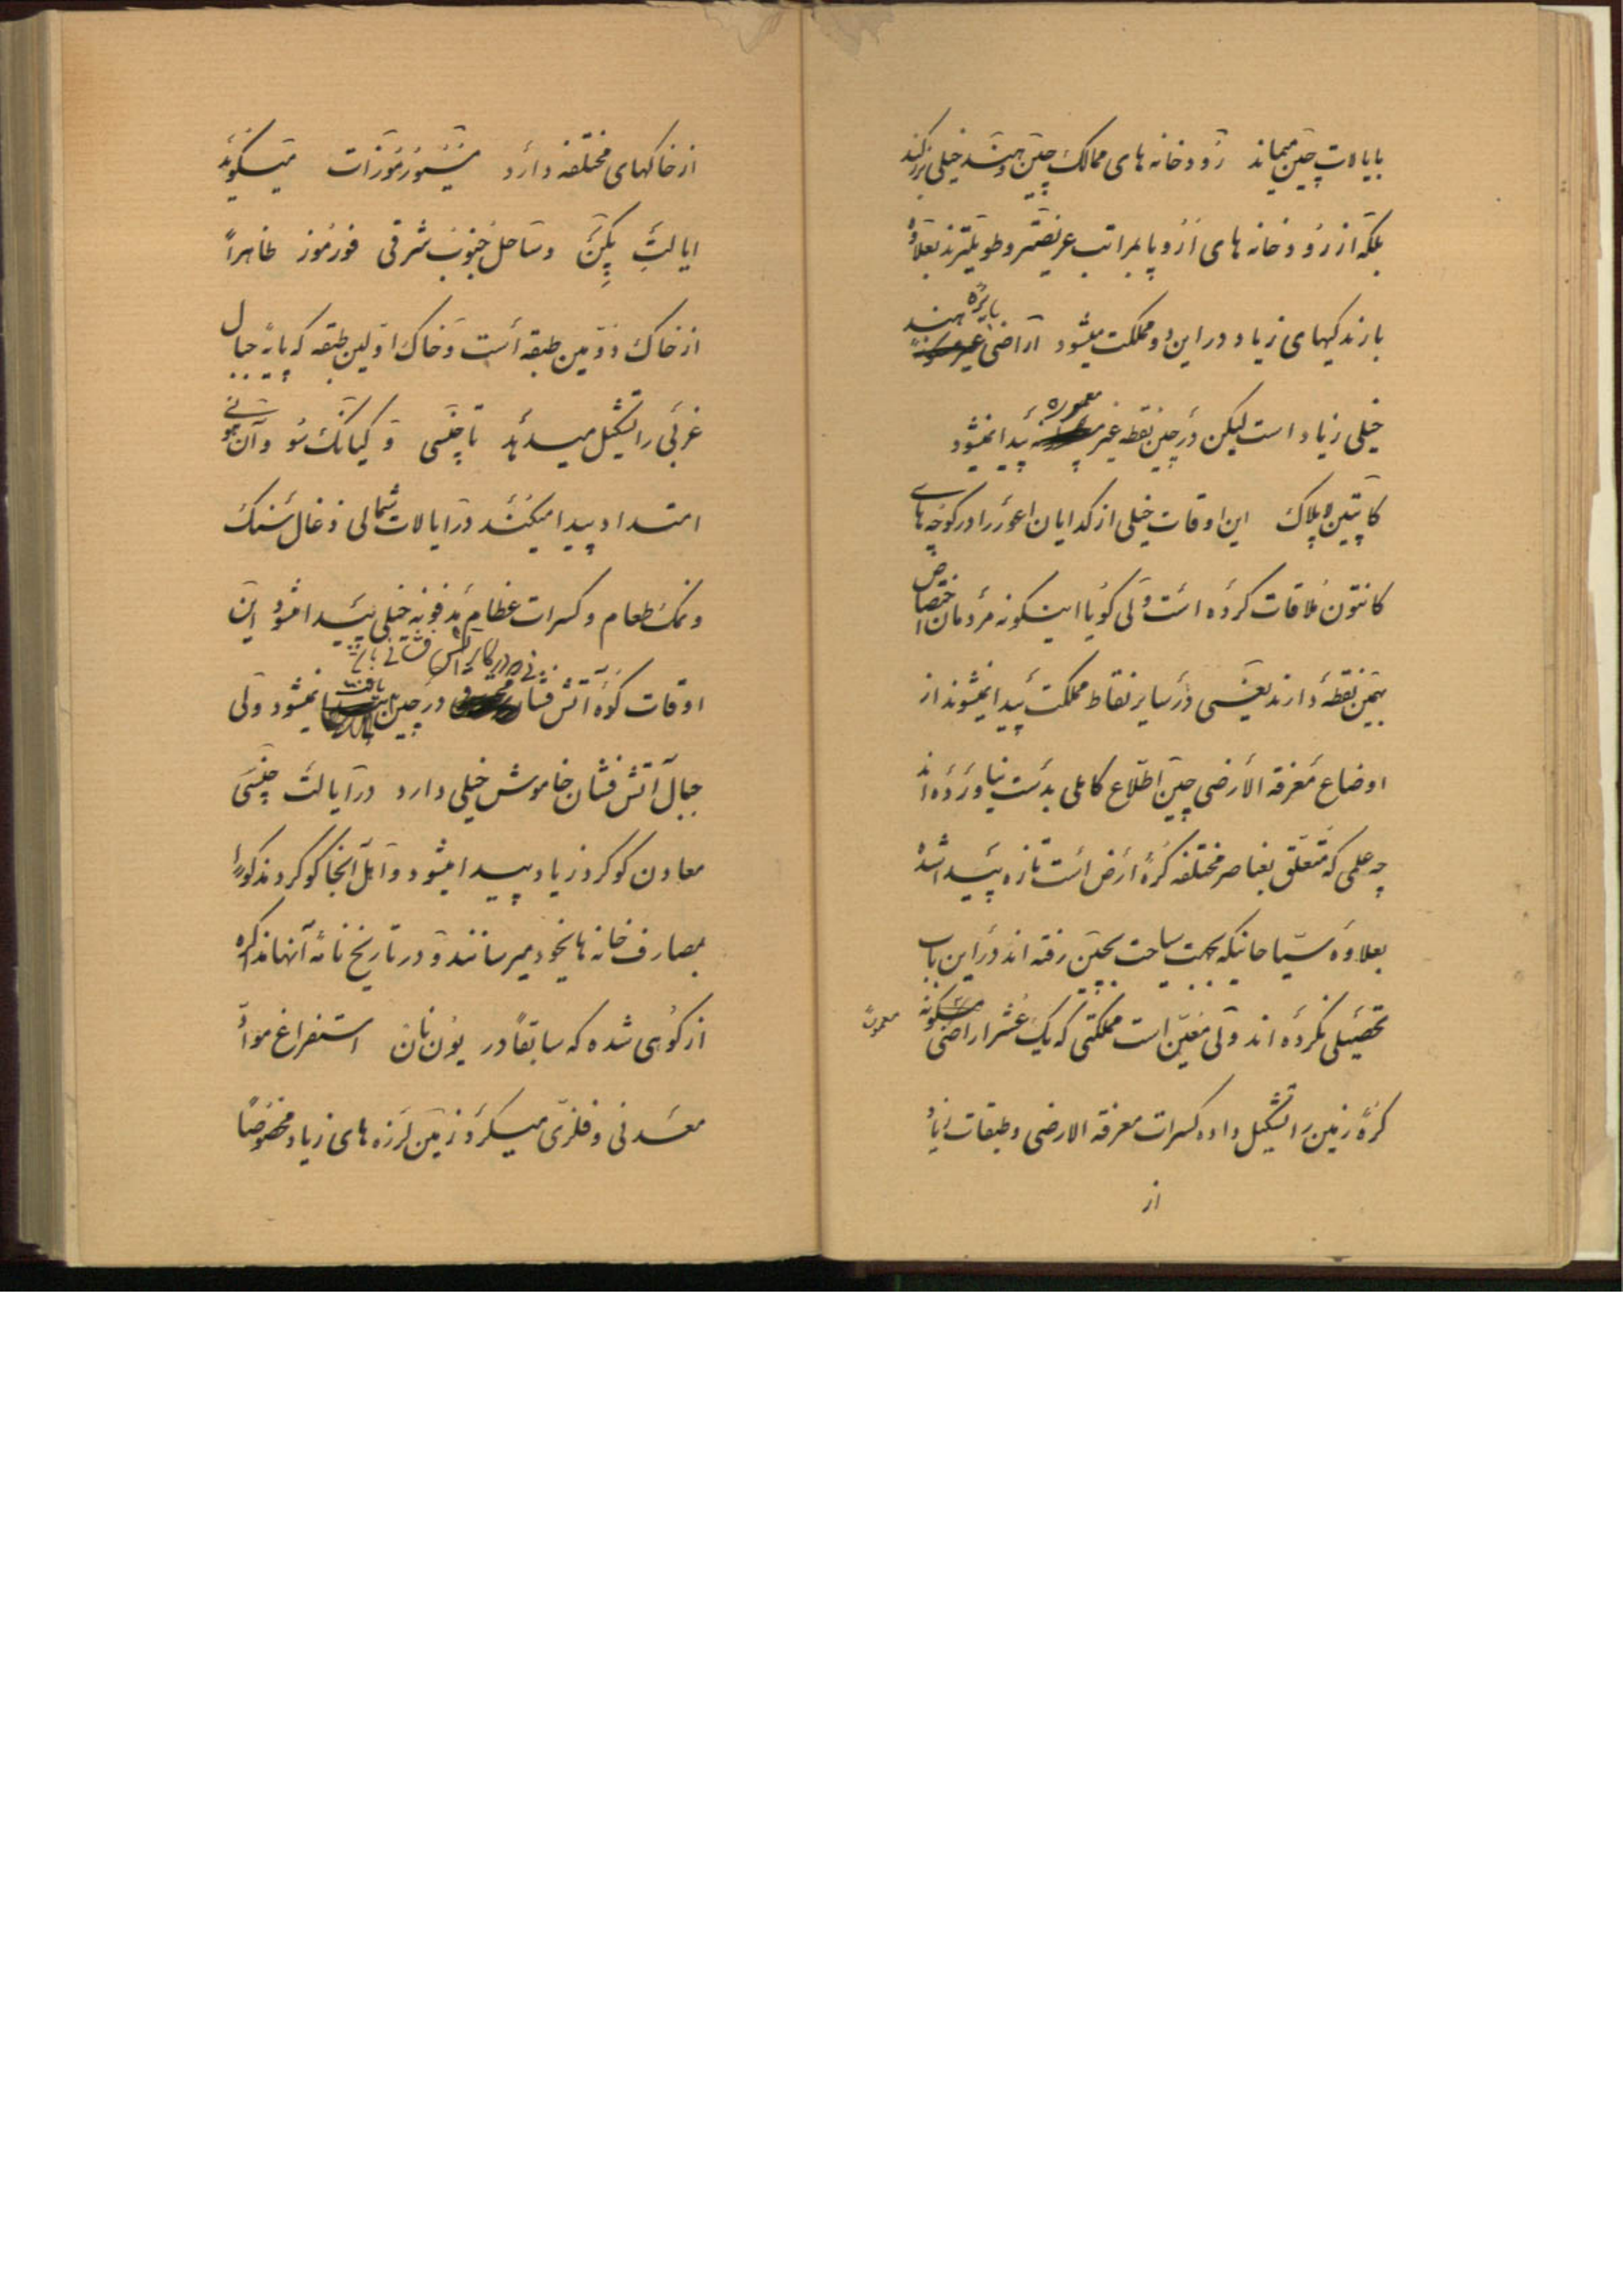 بایالات چین میماند رودخانه های ممالک چین و هند خیلی بزرگند
بلکه از رودخانه های اروپا بمراتب عریضتر و طویلترند بعلاوه
بارندگیهای زیاد در این دو مملکت میشود اراضی بایره هند
خیلی زیاد است لیکن در چین نقطه غیر معموره پیدا نمیشود
کاپیتن بلاک این اوقات خیلی از گدایان اعور را در کوچه های
کانتون ملاقات کرده است ولی گویا اینگونه مردمان اختصاص
بهمین نقطه دارند یعنی در سایر نقاط مملکت پیدا نمیشوند از
اوضاع معرفة الارضی چین اطلاع کاملی بدست نیاورده اند
چه علمی که متعلق بعناصر مختلفه کرهٔ ارض است تازه پیدا شده
بعلاوه سیاحانیکه بجهت سیاحت بچین رفته اند در این باب
تحصیلی نکرده اند ولی معین است مملکتی که یک عشر اراضی مسکونه
معمورهٔ
کرهٔ زمین را تشکیل داده کسرات معرفة الارضی و طبقات زیاد
از
از خاکهای مختلفه دارد میگوید
ایالت پکن و ساحل جنوب شرقی فورموز ظاهراً
از خاک دومین طبقه است و خاک اولین طبقه که پایهٔ جبال
غربی را تشکیل میدهد تا چنسی و کیانگ سو و آن هوئی
امتداد پیدا میکنند در ایالات شمالی ذغال سنگ
و نمک طعام و کسرات عظام مدفونه خیلی پیدا میشود این
اوقات کوه آتش فشان در چین یافت نمیشود ولی
جبال آتش فشان خاموش خیلی دارد در ایالت چنسی
معادن گوگرد زیاد پیدا میشود و اهل آنجا گوگرد مذکور را
بمصارف خانه های خود میرسانند و در تاریخ نامهٔ آنها مذاکره
از کوهی شده که سابقاً در یون نان استفراغ مواد
معدنی و فلزی میکرد زمین لرزه های زیاد مخصوصاً